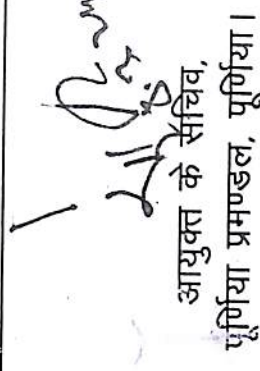 आयुक्त के सचिव,
पूर्णिया प्रमण्डल, पूर्णिया।